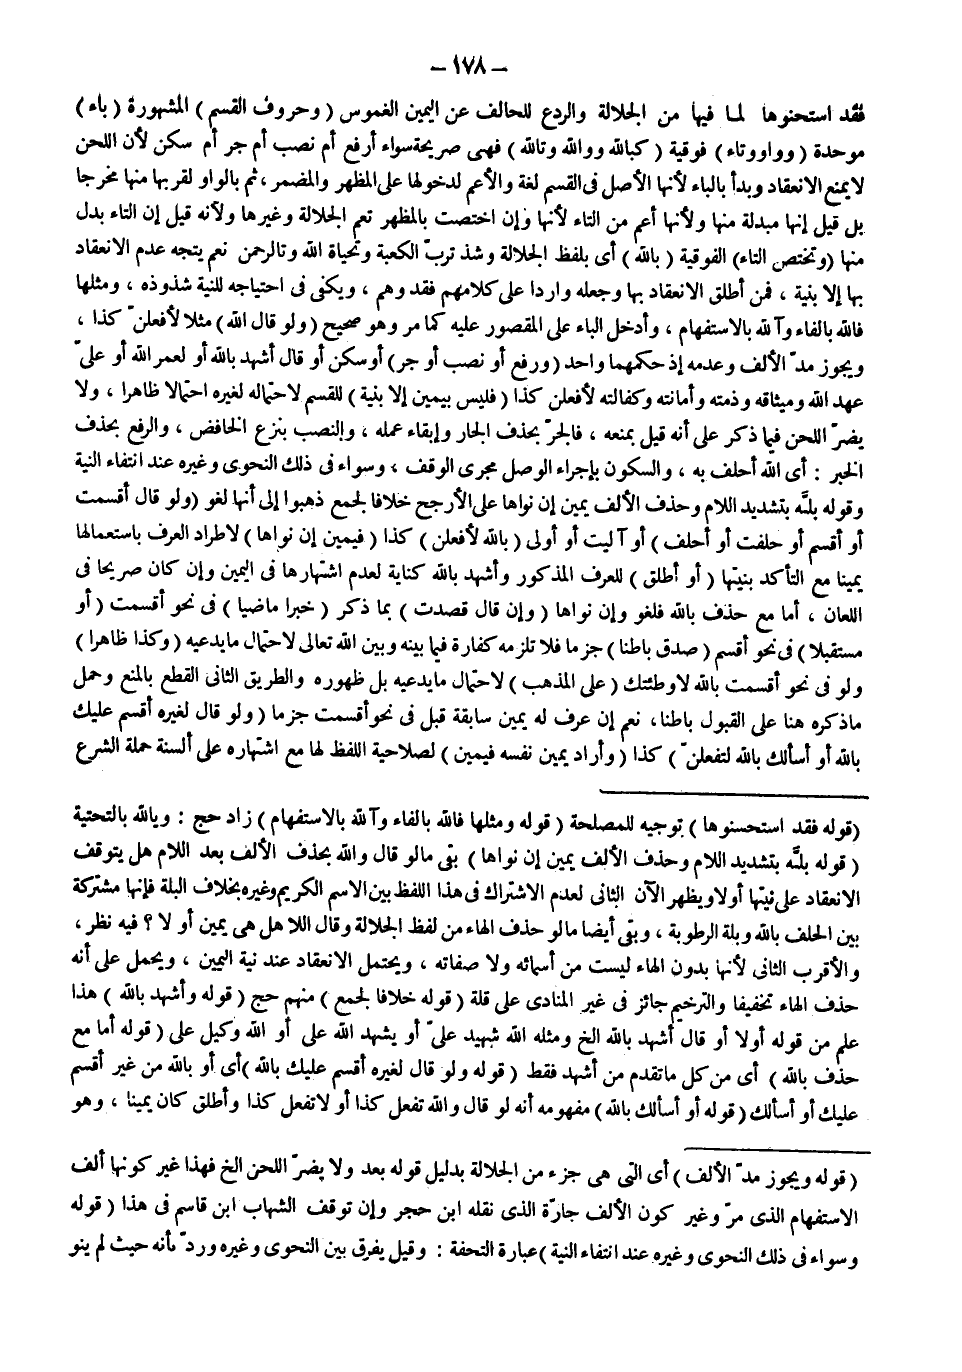 – ١٧٨ –
فقد استحنوها لما فيها من الجلالة والردع للحالف عن اليمين الغموس ( وحروف القسم ) المشهورة ( باء )
موحدة ( وواو وتاء ) فوقية ( كبالله ووالله وتالله ) فهى صريحة سواء أرفع أم نصب أم جر أم سكن لأن اللحن
لا يمنع الانعقاد وبدأ بالباء لأنها الأصل فى القسم لغة والأعم لدخولها على المظهر والمضمر ، ثم بالواو لقربها منها مخرجا
بل قيل إنها مبدلة منها ولأنها أعم من التاء لأنها وإن اختصت بالمظهر تعم الجلالة وغيرها ولأنه قيل إن التاء بدل
منها ( وتختص التاء ) الفوقية ( بالله ) أى بلفظ الجلالة وشذ تربّ الكعبة وتحياة الله وتالرحمن نعم يتجه عدم الانعقاد
بها إلا بنية ، فمن أطلق الانعقاد بها وجعله واردا على كلامهم فقد وهم ، ويكفى فى احتياجه للنية شذوذه ، ومثلها
فالله بالفاء وآلله بالاستفهام ، وأدخل الباء على المقصور عليه كما مر وهو صحيح ( ولو قال الله ) مثلا لأفعلنّ كذا ،
ويجوز مدّ الألف وعدمه إذ حكمهما واحد ( ورفع أو نصب أو جر ) أو سكن أو قال أشهد بالله أو لعمر الله أو علىّ
عهد الله وميثاقه وذمته وأمانته وكفالته لأفعلن كذا ( فليس بيمين إلا بنية ) للقسم لاحتماله لغيره احتمالا ظاهرا ، ولا
يضرّ اللحن فيما ذكر على أنه قيل بمنعه ، فالجرّ بحذف الجار وإبقاء عمله ، والنصب بنزع الخافض ، والرفع بحذف
الخبر : أى الله أحلف به ، والسكون بإجراء الوصل مجرى الوقف ، وسواء فى ذلك النحوى وغيره عند انتفاء النية
وقوله بلَّه بتشديد اللام وحذف الألف يمين إن نواها على الأرجح خلافا لجمع ذهبوا إلى أنها لغو ( ولو قال أقسمت
أو أقسم أو حلفت أو أحلف ) أو آليت أو أولى ( بالله لأفعلن ) كذا ( فيمين إن نواها ) لاطراد العرف باستعمالها
يمينا مع التأكد بنيتها ( أو أطلق ) للعرف المذكور وأشهد بالله كناية لعدم اشتهارها فى اليمين وإن كان صريحا فى
اللعان ، أما مع حذف بالله فلغو وإن نواها ( وإن قال قصدت ) بما ذكر ( خبرا ماضيا ) فى نحو أقسمت ( أو
مستقبلا ) فى نحو أقسم ( صدق باطنا ) جزما فلا تلزمه كفارة فيما بينه وبين الله تعالى لاحتمال ما يدعيه ( وكذا ظاهرا )
ولو فى نحو أقسمت بالله لا وطئتك ( على المذهب ) لاحتمال ما يدعيه بل ظهوره والطريق الثانى القطع بالمنع وحمل
ما ذكره هنا على القبول باطنا ، نعم إن عرف له يمين سابقة قبل فى نحو أقسمت جزما ( ولو قال لغيره أقسم عليك
بالله أو أسألك بالله لتفعلنّ ) كذا ( وأراد يمين نفسه فيمين ) لصلاحية اللفظ لها مع اشتهاره على ألسنة حملة الشرع
( قوله فقد استحسنوها ) توجيه للمصلحة ( قوله ومثلها فالله بالفاء وآلله بالاستفهام ) زاد حج : ويالله بالتحتية
( قوله بلَّه بتشديد اللام وحذف الألف يمين إن نواها ) بقى ما لو قال والله بحذف الألف بعد اللام هل يتوقف
الانعقاد على نيتها أو لا ويظهر الآن الثانى لعدم الاشتراك فى هذا اللفظ بين الاسم الكريم وغيره بخلاف البلة فإنها مشتركة
بين الحلف بالله وبلة الرطوبة ، وبقى أيضا ما لو حذف الهاء من لفظ الجلالة وقال اللا هل هى يمين أو لا ؟ فيه نظر ،
والأقرب الثانى لأنها بدون الهاء ليست من أسمائه ولا صفاته ، ويحتمل الانعقاد عند نية اليمين ، ويحمل على أنه
حذف الهاء تخفيفا والترخيم جائز فى غير المنادى على قلة ( قوله خلافا لجمع ) منهم حج ( قوله وأشهد بالله ) هذا
علم من قوله أولا أو قال أشهد بالله الخ ومثله الله شهيد علىّ أو يشهد الله على أو الله وكيل على ( قوله أما مع
حذف بالله ) أى من كل ما تقدم من أشهد فقط ( قوله ولو قال لغيره أقسم عليك بالله ) أى أو بالله من غير أقسم
عليك أو أسألك ( قوله أو أسألك بالله ) مفهومه أنه لو قال والله تفعل كذا أو لا تفعل كذا وأطلق كان يمينا ، وهو
( قوله ويجوز مدّ الألف ) أى التى هى جزء من الجلالة بدليل قوله بعد ولا يضرّ اللحن الخ فهذا غير كونها ألف
الاستفهام الذى مرّ وغير كون الألف جارّة الذى نقله ابن حجر وإن توقف الشهاب ابن قاسم فى هذا ( قوله
وسواء فى ذلك النحوى وغيره عند انتفاء النية ) عبارة التحفة : وقيل يفرق بين النحوى وغيره وردّ بأنه حيث لم ينو